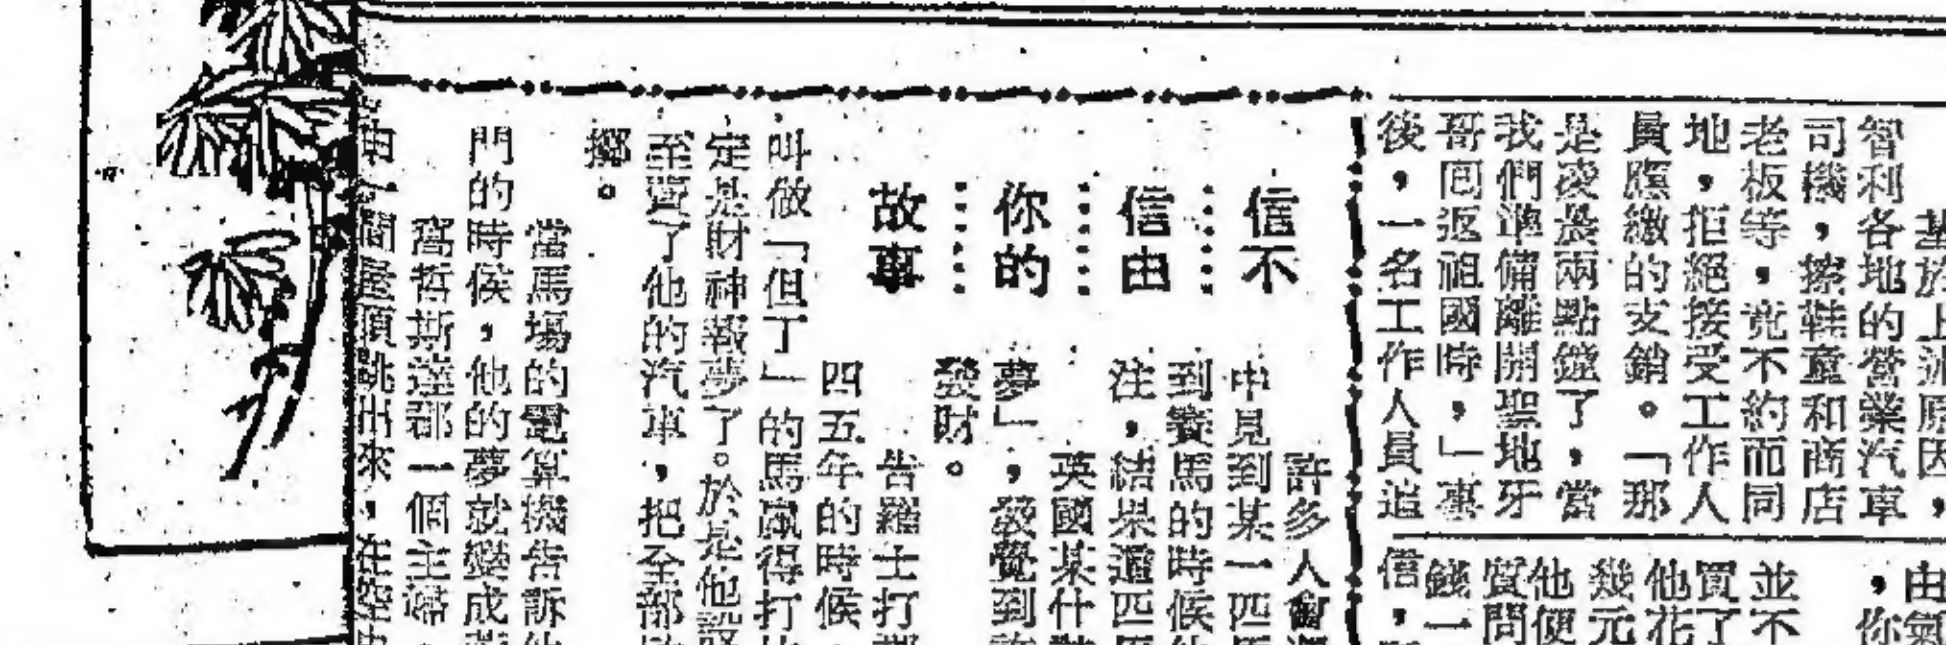 基於上述原因，
智利各地的營業汽車
司機，擦鞋童和商店
老板等，竟不約而同
地，拒絕接受工作人
員應繳的支銷。「那
是凌晨兩點鐘了，當
我們準備離開聖地牙
哥囘返祖國時，」事
後，一名工作人員追
由氣
，你
並不
買了
他花
幾元
他便
質問
錢一
信，
信不
信由
你的
故事
許多人會
中見到某一匹馬
到賽馬的時候
注，結果這匹
英國某什
夢」，發覺到
發財。
告羅士打郡
四五年的時候，
叫做「但丁」的馬贏得打
定是財神報夢了。於是他
至賣了他的汽車，把全部
擲。
當馬場的電算機告訴他
門的時候，他的夢就變成
窩哲斯達郡一個主婦，
由一間屋頂跳出來，在空中